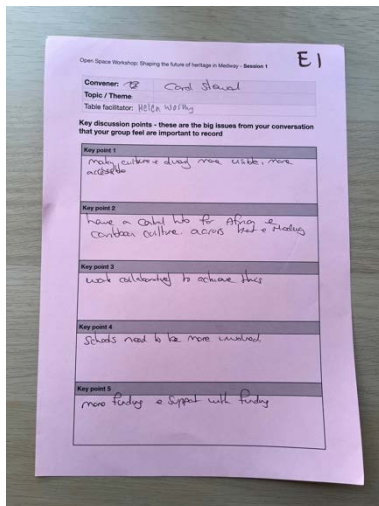 E1
Open Space Workshop: Shaping the future of heritage in Medway - Session 1
Convener: Carol Stewart
Topic / Theme
Table facilitator: Helen Worthy
Key discussion points - these are the big issues from your conversation
that your group feel are important to record
Key point 1
making culture + diversity more visible, more
accessible
Key point 2
have a central hub for African &
caribbean culture. across Kent & Medway
Key point 3
work collaboratively to achieve this
Key point 4
Schools need to be more involved
Key point 5
more funding & support with funding